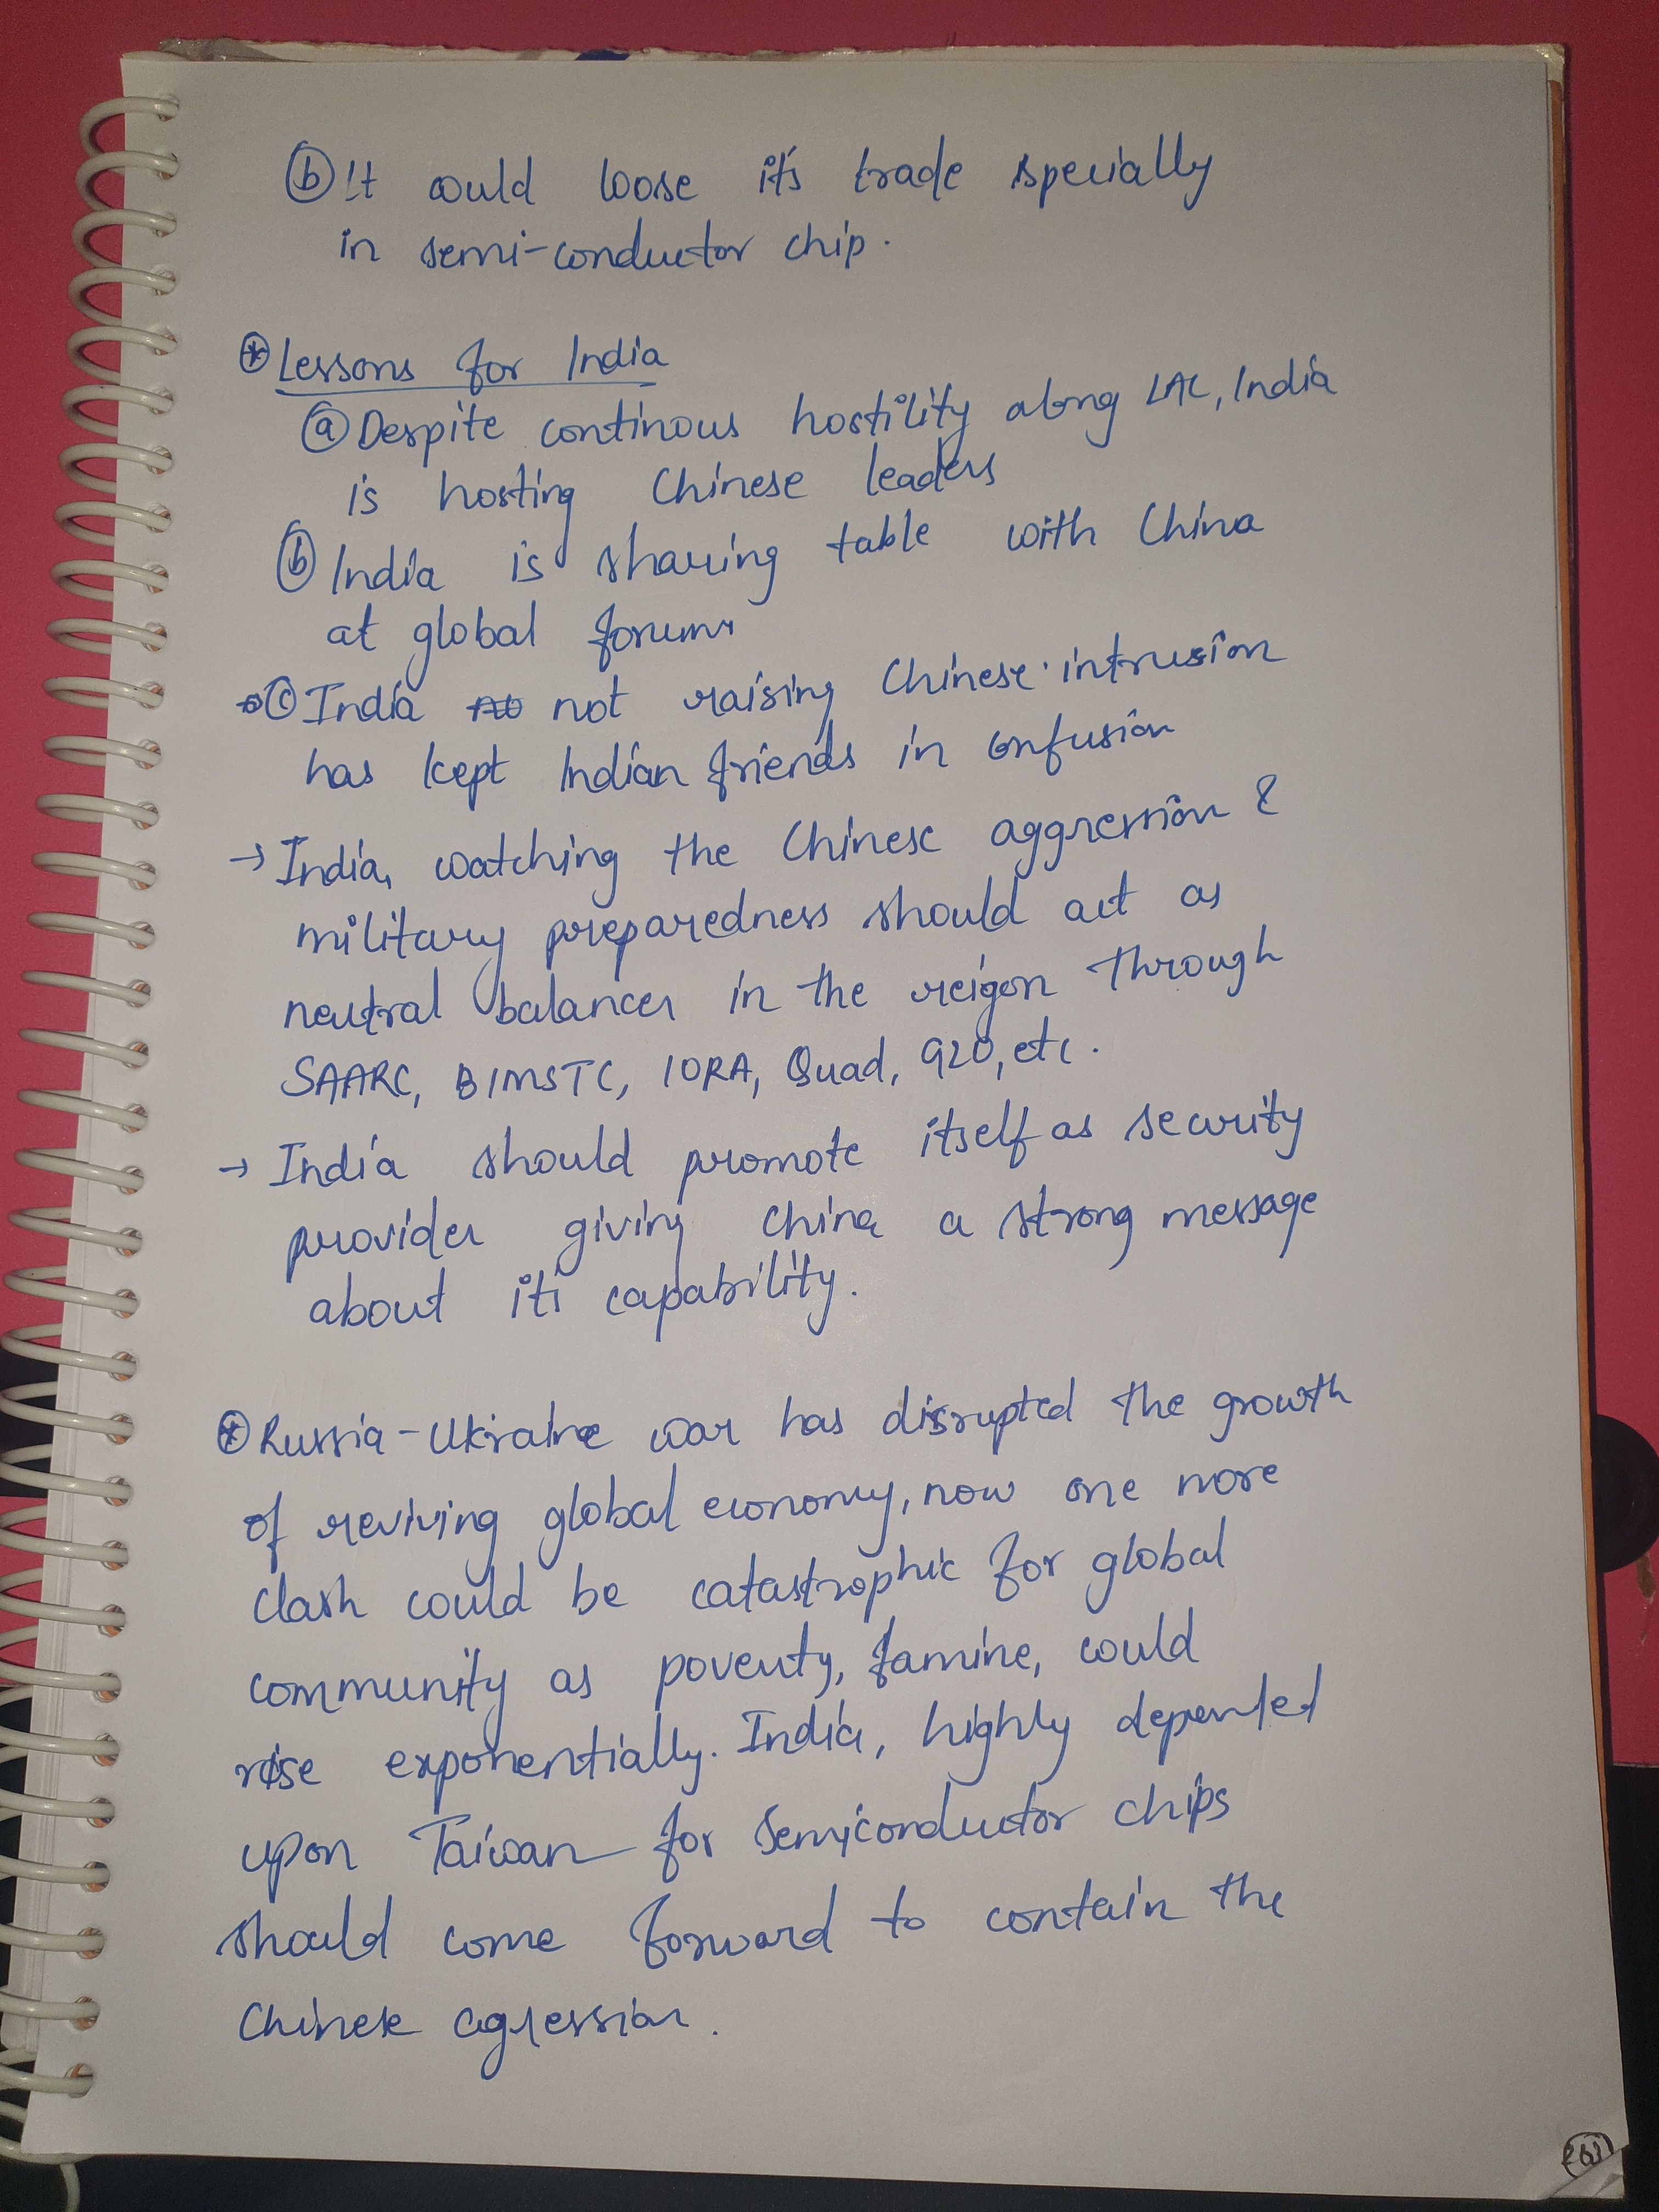 ⓑ It would loose it's trade specially
in semi-conductor chip.
⊛ Lessons for India
ⓐ Despite continous hostility along LAC, India
is hosting Chinese leaders
ⓑ India is sharing table with China
at global forums
ⓒ India not raising Chinese intrusion
has kept Indian friends in confusion
→ India, watching the Chinese aggression &
military preparedness should act as
neutral balancer in the reigon through
SAARC, BIMSTC, IORA, Quad, G20, etc.
→ India should promote itself as security
provider giving China a strong message
about its capability.
⊛ Russia-Ukraine war has disrupted the growth
of reviving global economy, now one more
clash could be catastrophic for global
community as poverty, famine, could
rise exponentially. India, highly depended
upon Taiwan for semiconductor chips
should come forward to contain the
Chinese agression.